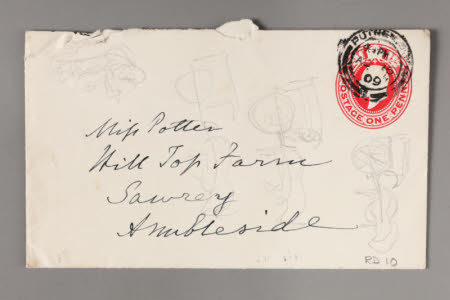 PUTNEY
09
POSTAGE ONE PENNY
Miss Potter
Hill Top Farm
Sawrey
Ambleside
RD 10